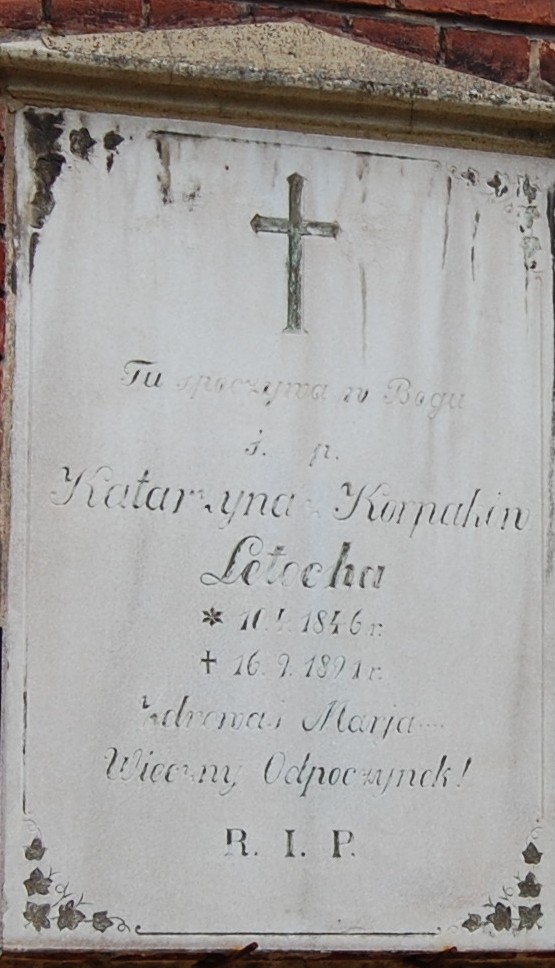 Tu spoczywa w Bogu
ś. p.
Katarzyna z Korpaków
Letocha
* 10. 4. 1846 r.
† 16. 9. 1891 r.
Zdrowaś Marja....
Wieczny Odpoczynek!
R. I. P.